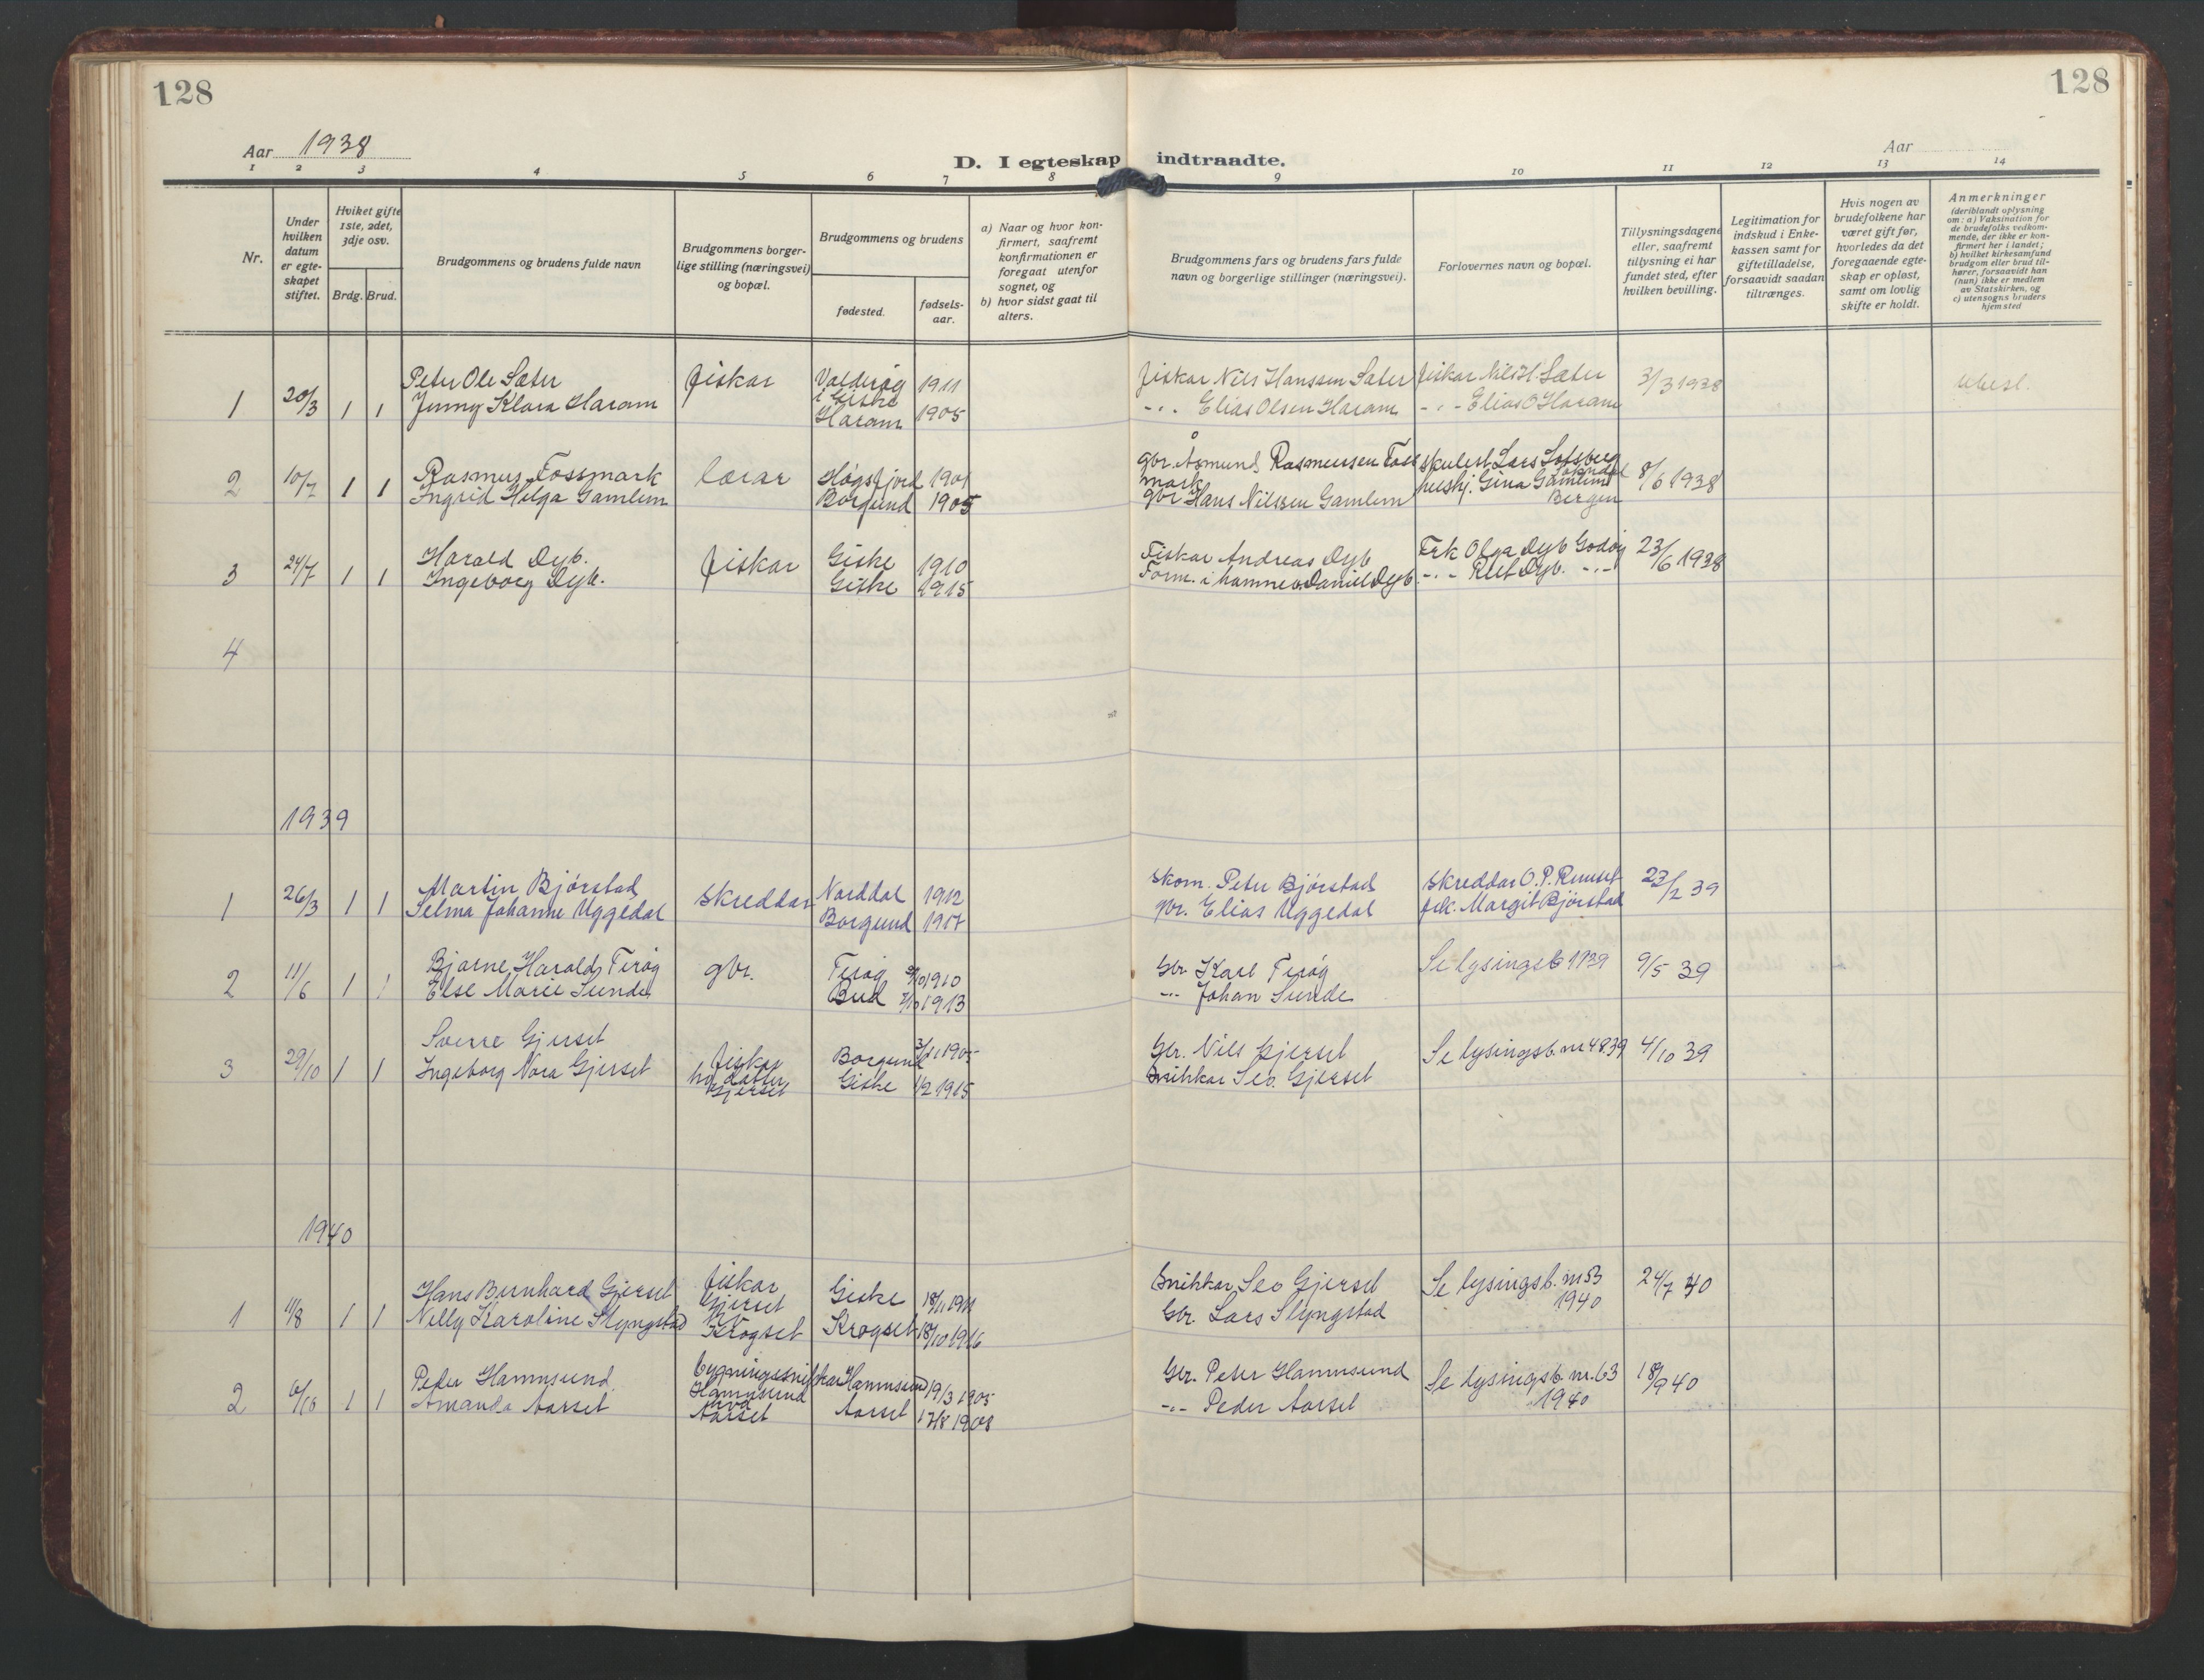 128
128
Aar 1938
D. I egteskap indtraadte.
Aar
1 2 3 4 5 6 7 8 9 10 11 12 13 14
Nr.
Under hvilken datum er egte-skapet stiftet.
Hviket gifte 1ste, 2det, 3dje osv.
Brdg. Brud.
Brudgommens og brudens fulde navn
Brudgommens borger-lige stilling (næringsvei) og bopæl.
Brudgommens og brudens
fødested.
fødsels-aar.
a) Naar og hvor kon-firmert, saafremt konfirmationen er foregaat utenfor sognet, og
b) hvor sidst gaat til alters.
Brudgommens fars og brudens fars fulde navn og borgerlige stillinger (næringsvei).
Forlovernes navn og bopæl.
Tillysningsdagene eller, saafremt tillysning ei har fundet sted, efter hvilken bevilling.
Legitimation for indskud i Enke-kassen samt for giftetilladelse, forsaavidt saadan tiltrænges.
Hvis nogen av brudefolkene har været gift før, hvorledes da det foregaaende egte-skap er opløst, samt om lovlig skifte er holdt.
Anmerkninger (deriblandt oplysning om: a) Vaksination for de brudefolks vedkom-mende, der ikke er kon-firmert her i landet; b) hvilket kirkesamfund brudgom eller brud til-hører, forsaavidt han (hun) ikke er medlem av Statskirken, og c) utensogns bruders hjemsted
1 20/3 1 1 Peter Ole Sæter fiskar Valderøy i Giske 1911 fiskar Nils Hanssen Sæter fiskar Nils H. Sæter 3/3 1938 ubesl.
Jenny Klara Haram Haram 1905 -"- Elias Olsen Haram -"- Elias O Haram
2 10/7 1 1 Rasmus Fossmark lærar Høgsfjord 1901 gbr. Åsmund Rasmussen Fossmark skulest. Lars 8/6 1938
Ingrid Helga Gamlem Borgund 1905 gbr Hans Nilssen Gamlem hushj. Gina Gamlem Bergen
3 24/7 1 1 Harald Dyb. fiskar Giske 1910 Fiskar Andreas Dyb Frk Olga Dyb Godøy 23/6 1938
Ingeborg Dyb. Giske 1915 Form. i hamnev. Daniel Dyb -"- Rut Dyb. -"-
4
1939
1 26/3 1 1 Martin Bjørstad skreddar Norddal 1912 skom. Peter Bjørstad skreddar O. P. Ruuset 23/2 39
Selma Johanne Uggedal Borgund 1917 gbr. Elias Uggedal frk. Margit Bjørstad
2 11/6 1 1 Bjarne Harald Firøy gbr. Firøy 1910 Gbr. Karl Firøy Se lysingsb 1939 9/5 39
Else Marie Sunde Bud 7/10 1913 -"- Johan Sunde
3 29/10 1 1 Sverre Gjerset fiskar Borgund 3/11 1905 Gbr. Nils Gjerset Se lysingsb. nr 48 39 4/10 39
Ingeborg Nora Gjerset hj datter Gjerset Giske 1/2 1915 Snikkar Seb. Gjerset
1940
1 11/8 1 1 Hans Bernhard Gjerset fiskar Gjerset Giske 18/11 1911 Snikkar Seo Gjerset Se lysingsb. nr 53 1940 24/7 40
Nelly Karoline Slyngstad Hv. Krogset Krogset 18/10 1916 Gbr. Lars Slyngstad
2 6/10 1 1 Peder Hamnsund bygningssnikkar Hamnsund Hamnsund 19/3 1905 Gbr. Peter Hamnsund Se lysingsb. nr. 63 1940 18/9 40
Amanda Aarset hvd Aarset Aarset 17/8 1908 -"- Peder Aarset